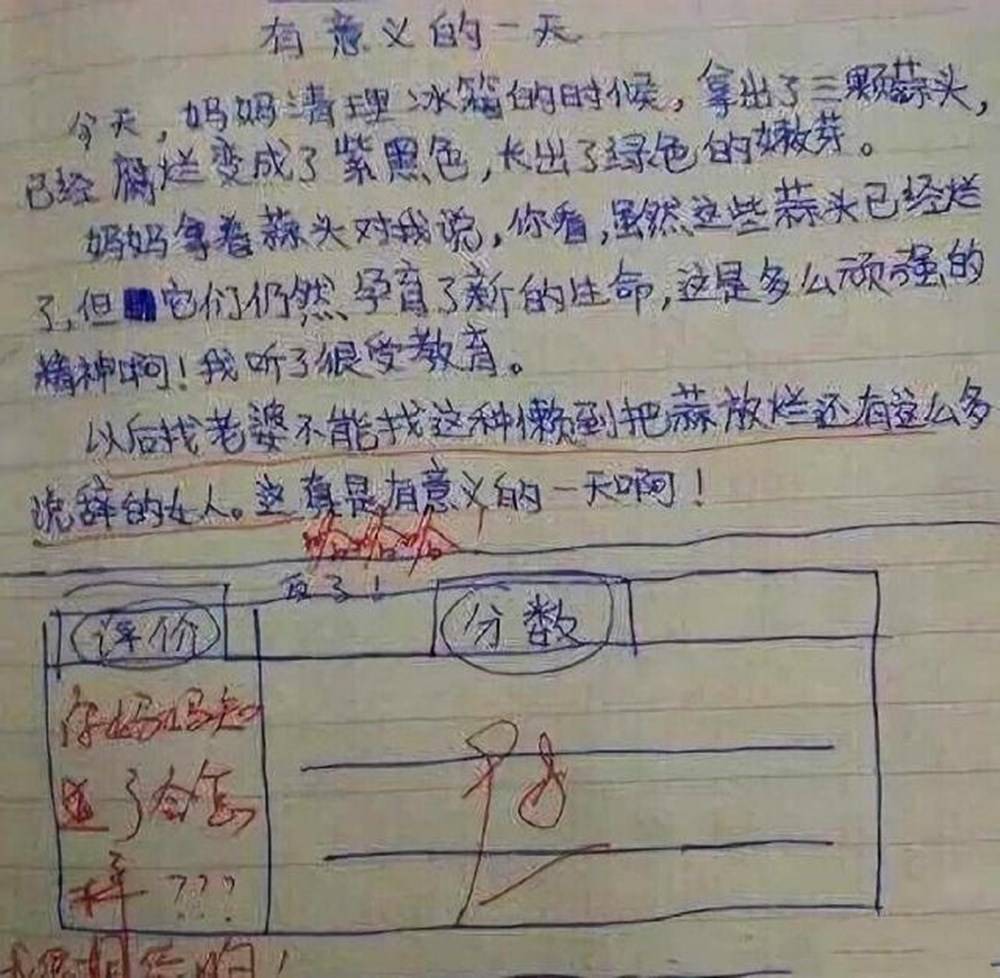 有意义的一天
今天，妈妈清理冰箱的时候，拿出了三颗蒜头，
已经腐烂变成了紫黑色，长出了绿色的嫩芽。
妈妈拿着蒜头对我说，你看，虽然这些蒜头已经烂
了，但它们仍然孕育了新的生命，这是多么顽强的
精神啊！我听了很受教育。
以后找老婆不能找这种懒到把蒜放烂还有这么多
说辞的女人。这真是有意义的一天啊！
评价
分数
你妈妈知
道了会怎
样???
98